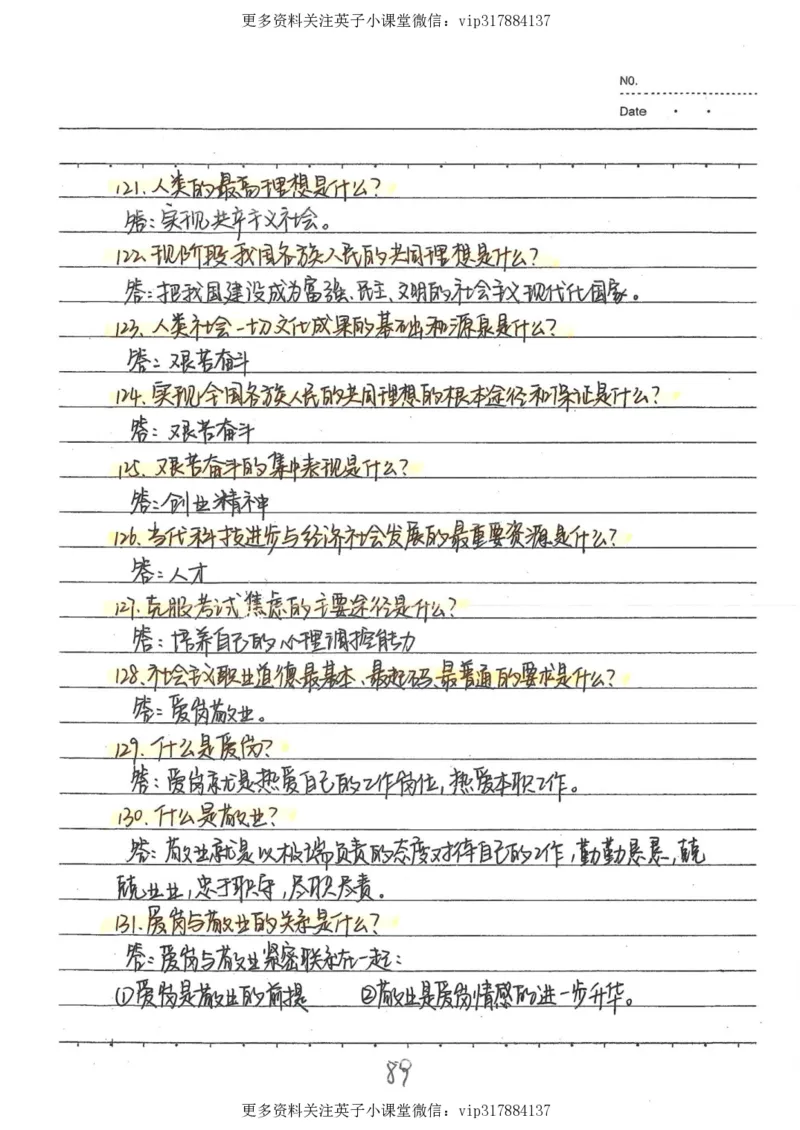 更多资料关注英子小课堂微信：vip317884137
NO.
Date
121.人类的最高理想是什么？
答：实现共产主义社会。
122.现阶段我国各族人民的共同理想是什么？
答：把我国建设成为富强、民主、文明的社会主义现代化国家。
123.人类社会一切文化成果的基础和源泉是什么？
答：艰苦奋斗
124.实现全国各族人民的共同理想的根本途径和保证是什么？
答：艰苦奋斗
125.艰苦奋斗的集中表现是什么？
答：创业精神
126.当代科技进步与经济社会发展的最重要资源是什么？
答：人才
127.克服考试焦虑的主要途径是什么？
答：培养自己的心理调控能力
128.社会主义职业道德最基本、最起码、最普通的要求是什么？
答：爱岗敬业。
129.什么是爱岗？
答：爱岗就是热爱自己的工作岗位，热爱本职工作。
130.什么是敬业？
答：敬业就是以极端负责的态度对待自己的工作，勤勤恳恳，兢
兢业业，忠于职守，尽职尽责。
131.爱岗与敬业的关系是什么？
答：爱岗与敬业紧密联系在一起：
①爱岗是敬业的前提 ②敬业是爱岗情感的进一步升华。
89
更多资料关注英子小课堂微信：vip317884137